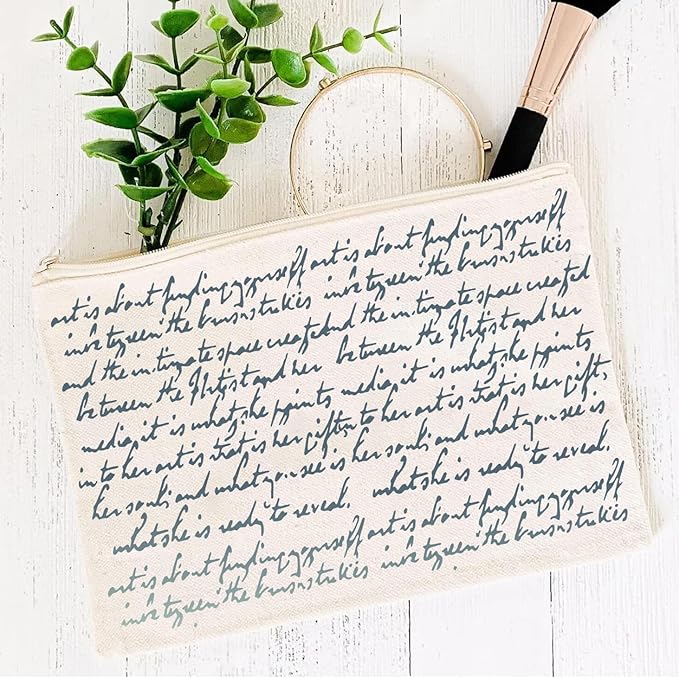 art is about finding yourself art is about finding yourself
in between the brushstrokes in between the brushstrokes
and the intimate space created and the intimate space created
between the Artist and her between the Artist and her
media, it is what she paints media, it is what she paints
into her art is that is her gift, into her art is that is her gift,
her soul; and what you see is her soul; and what you see is
what she is ready to reveal. what she is ready to reveal.
art is about finding yourself art is about finding yourself
in between the brushstrokes in between the brushstrokes